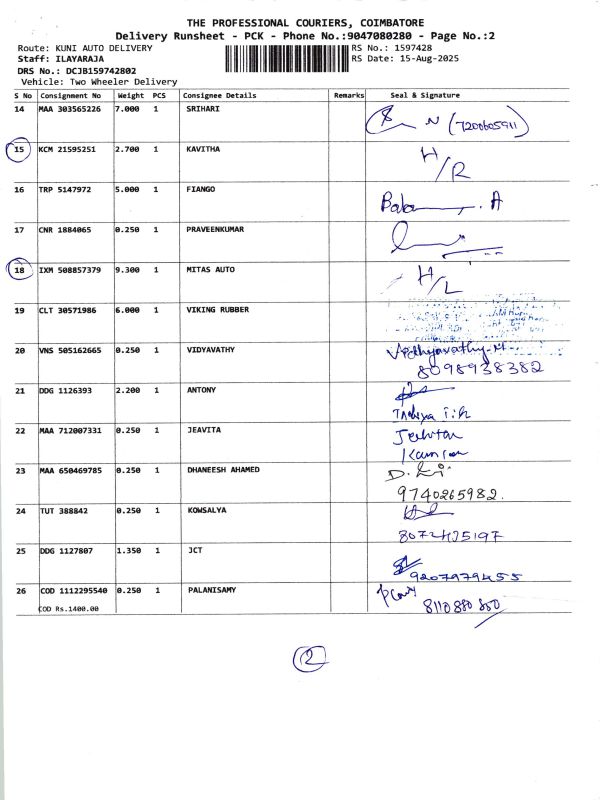 THE PROFESSIONAL COURIERS, COIMBATORE
Delivery Runsheet - PCK - Phone No.:9047080280 - Page No.:2
Route: KUNI AUTO DELIVERY RS No.: 1597428
Staff: ILAYARAJA RS Date: 15-Aug-2025
DRS No.: DCJB159742802
Vehicle: Two Wheeler Delivery
S No Consignment No Weight PCS Consignee Details Remarks Seal & Signature
14 MAA 303565226 7.000 1 SRIHARI N (7200605911)
15 KCM 21595251 2.700 1 KAVITHA H/R
16 TRP 5147972 5.000 1 FIANGO
17 CNR 1884065 0.250 1 PRAVEENKUMAR
18 IXM 508857379 9.300 1 MITAS AUTO H/L
19 CLT 30571986 6.000 1 VIKING RUBBER
20 VNS 505162665 0.250 1 VIDYAVATHY
8098938382
21 DDG 1126393 2.200 1 ANTONY
22 MAA 712007331 0.250 1 JEAVITA
23 MAA 650469785 0.250 1 DHANEESH AHAMED
9740265982.
24 TUT 388842 0.250 1 KOWSALYA
8072435197
25 DDG 1127807 1.350 1 JCT
9207979455
26 COD 1112295540 0.250 1 PALANISAMY
COD Rs.1400.00 8110880850
2